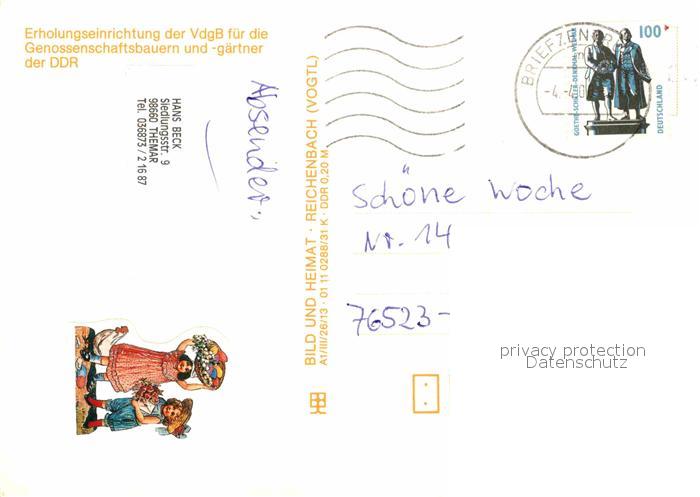 Erholungseinrichtung der VdgB für die
Genossenschaftsbauern und -gärtner
der DDR
HANS BECK
Siedlungsstr. 9
98660 THEMAR
Tel. 036873 / 2 16 87
Absender:
BILD UND HEIMAT · REICHENBACH (VOGTL)
A1/III/26/13 · 01 11 0288/31 K · DDR 0,20 M
GOETHE-SCHILLER-DENKMAL WEIMAR
100
DEUTSCHLAND
Schöne Woche
Nr. 14
76523-
privacy protection
Datenschutz